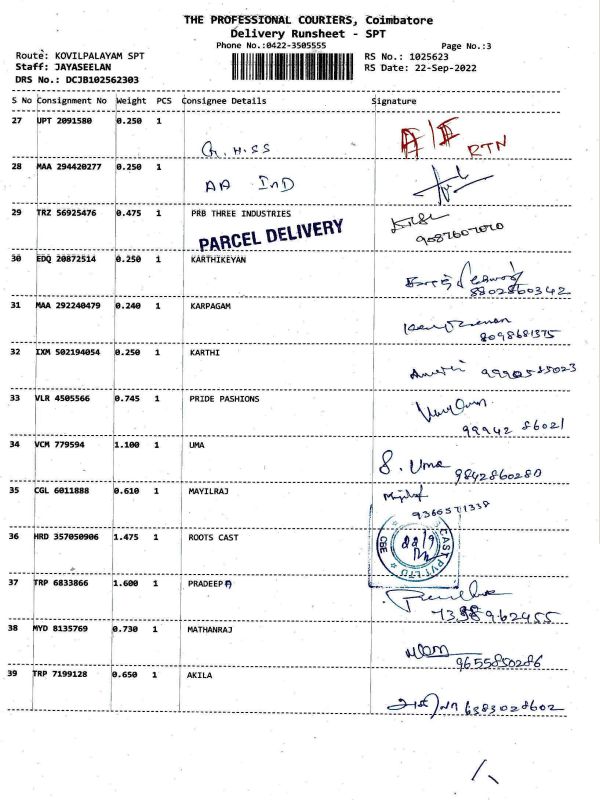 THE PROFESSIONAL COURIERS, Coimbatore
Delivery Runsheet - SPT
Phone No.:0422-3505555 Page No.:3
Route: KOVILPALAYAM SPT RS No.: 1025623
Staff: JAYASEELAN RS Date: 22-Sep-2022
DRS No.: DCJB102562303
S No Consignment No Weight PCS Consignee Details Signature
27 UPT 2091580 0.250 1
G.H.SS RTN
28 MAA 294420277 0.250 1
AA IND
29 TRZ 56925476 0.475 1 PRB THREE INDUSTRIES
PARCEL DELIVERY 9087607070
30 EDQ 20872514 0.250 1 KARTHIKEYAN
8802860342
31 MAA 292240479 0.240 1 KARPAGAM
8098681375
32 IXM 502194054 0.250 1 KARTHI
9990585023
33 VLR 4505566 0.745 1 PRIDE PASHIONS
99942 86021
34 VCM 779594 1.100 1 UMA
S. Uma 9842860280
35 CGL 6011888 0.610 1 MAYILRAJ
9360571338
36 HRD 357050906 1.475 1 ROOTS CAST
CAST PVT-LTD CBE 22/9
37 TRP 6833866 1.600 1 PRADEEPA
7358962455
38 MYD 8135769 0.730 1 MATHANRAJ
9655850286
39 TRP 7199128 0.650 1 AKILA
6383028602